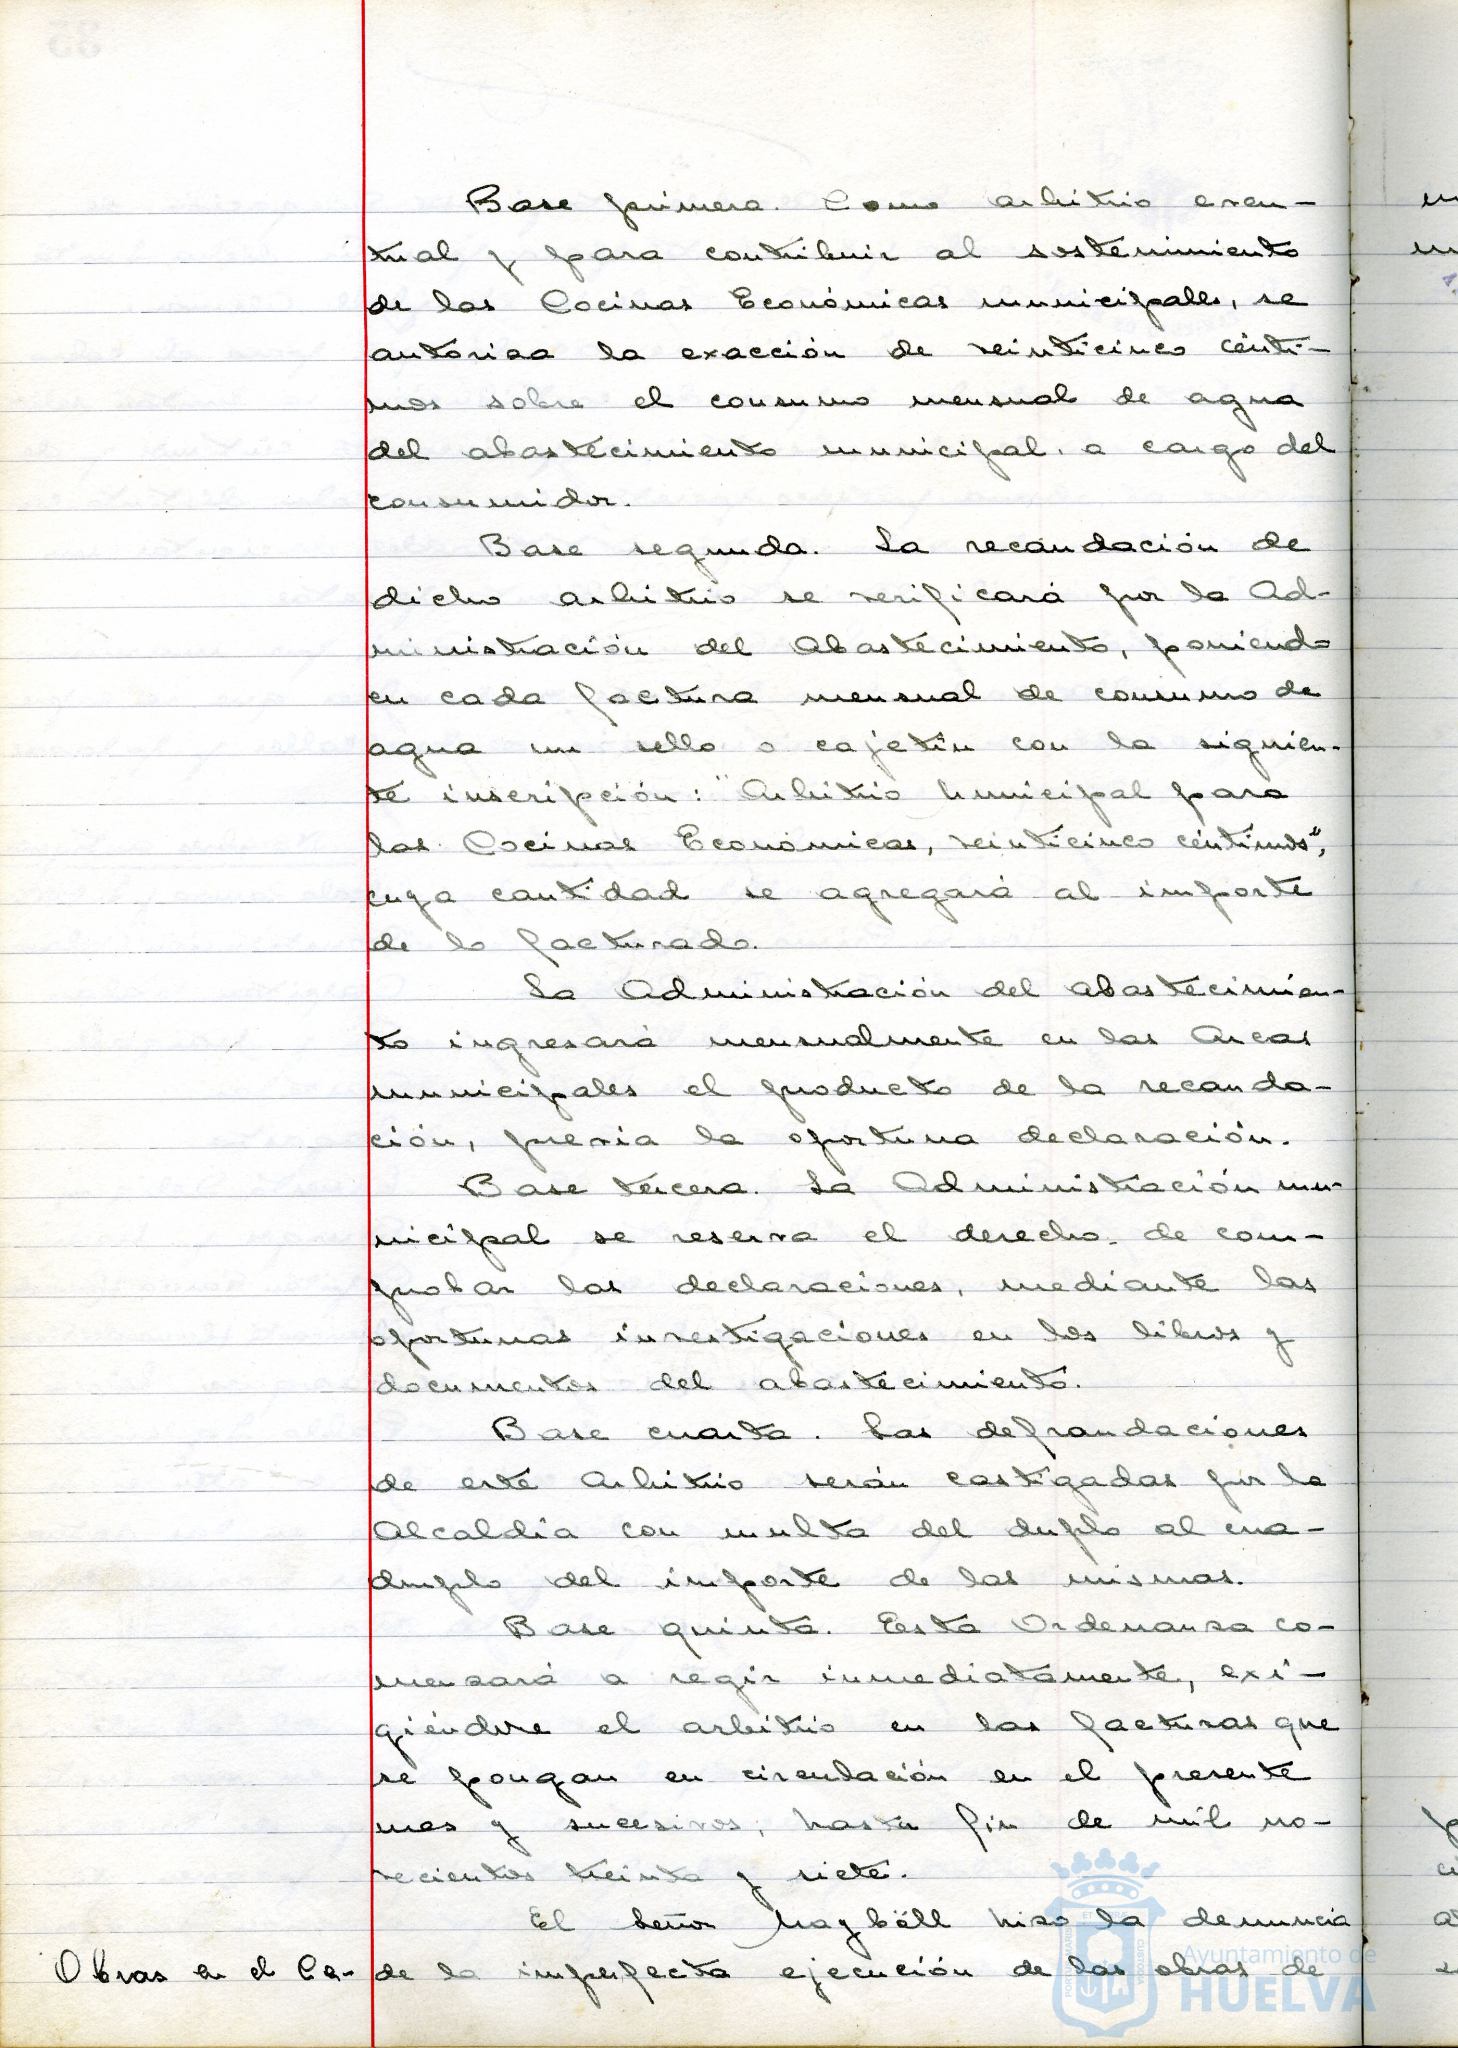 Base primera. Como arbitrio even-
tual y para contribuir al sostenimiento
de las Cocinas Económicas municipales, se
autoriza la exacción de veinticinco cénti-
mos sobre el consumo mensual de agua
del abastecimiento municipal, a cargo del
consumidor.
Base segunda. La recaudación de
dicho arbitrio se verificará por la Ad-
ministración del Abastecimiento, poniendo
en cada factura mensual de consumo de
agua un sello o cajetín con la siguien-
te inscripción: "Arbitrio Municipal para
las Cocinas Económicas, veinticinco céntimos",
cuya cantidad se agregará al importe
de lo facturado.
La Administración del abastecimien-
to ingresará mensualmente en las Arcas
municipales el producto de la recauda-
ción, previa la oportuna declaración.
Base tercera. La Administración mu-
nicipal se reserva el derecho de com-
probar las declaraciones, mediante las
oportunas investigaciones en los libros y
documentos del abastecimiento.
Base cuarta. Las defraudaciones
de este Arbitrio serán castigadas por la
Alcaldía con multa del duplo al cua-
druplo del importe de las mismas.
Base quinta. Esta Ordenanza co-
menzará a regir inmediatamente, exi-
giéndose el arbitrio en las facturas que
se pongan en circulación en el presente
mes y sucesivos, hasta fin de mil no-
vecientos treinta y siete.
El Señor Mayböll hizo la denuncia
Obras en el Ce-
de la imperfecta ejecución de las obras de
Ayuntamiento de
HUELVA